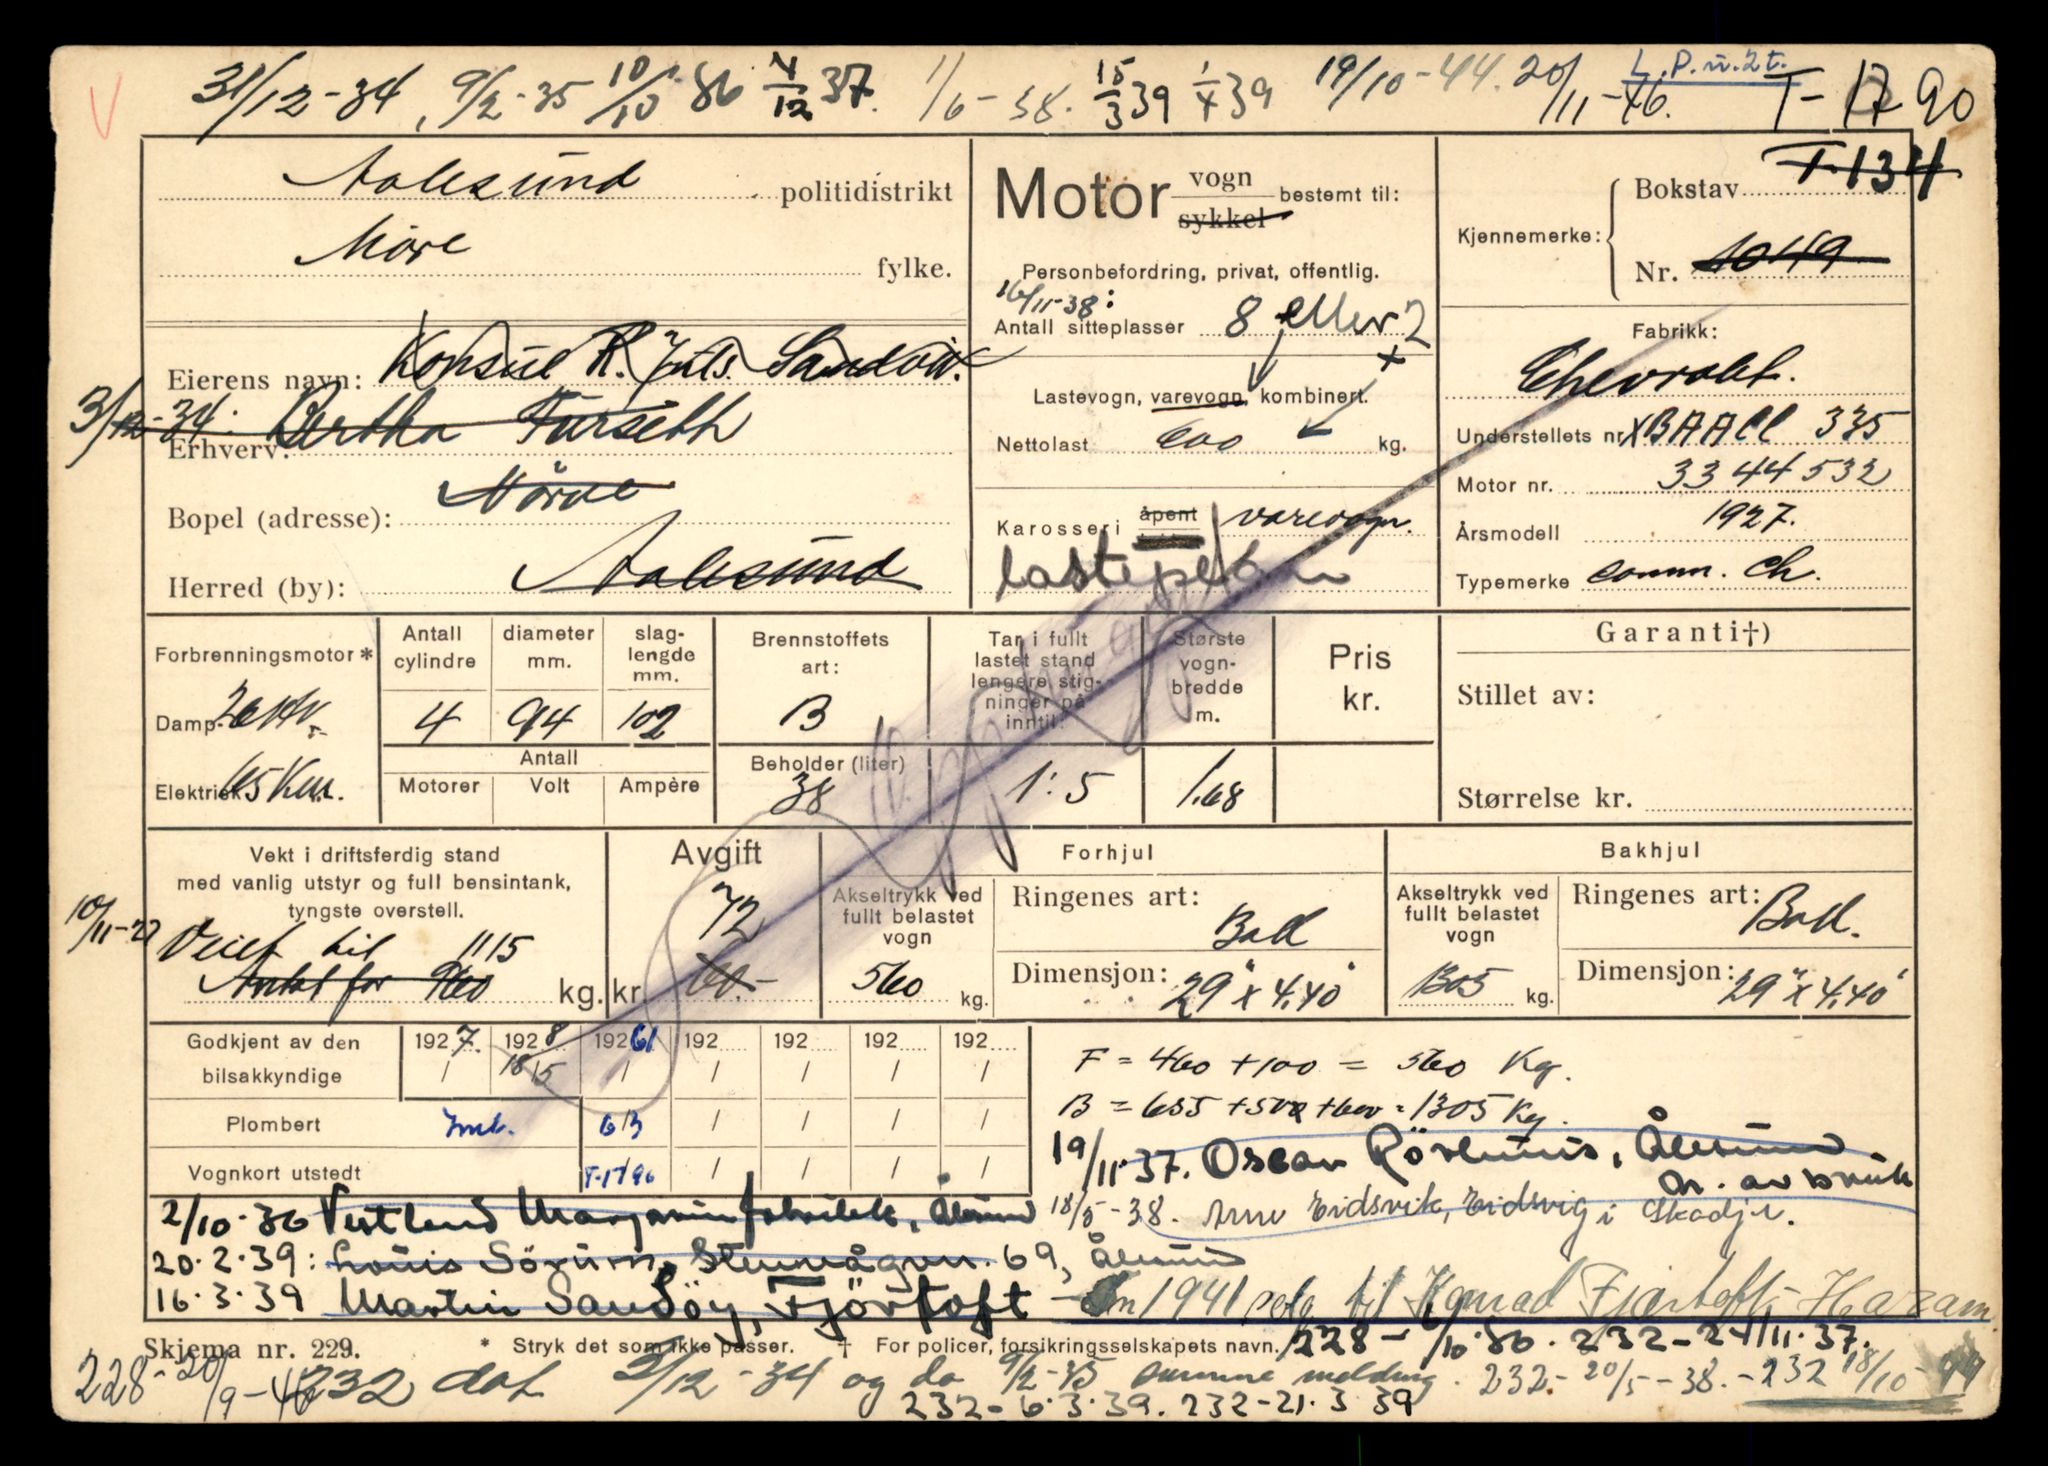 31/12-34, 9/2-35 10/10 36 4/12 37. 1/6-38. 15/3 39 1/4 39 19/10-44. 20/11-46. L.P.n.2t. T-1790
Aalesund politidistrikt
Møre fylke.
Eierens navn: Konsul R. Juls. Sandvik.
31/12-34. Bertha Furseth
Erhverv:
Bopel (adresse): Nørve
Herred (by): Aalesund
Motor vogn sykkel bestemt til:
Personbefordring, privat, offentlig.
16/11-38:
Antall sitteplasser 8 eller 2
Lastevogn, varevogn, kombinert.
Nettolast 600 kg.
Karosseri åpent varevogn.
lasteplan
T-134
Kjennemerke: Bokstav
Nr. 1049
Fabrikk:
Chevrolet.
Understellets nr XBAALL 335
Motor nr. 3344532
Årsmodell 1927.
Typemerke comm. Ch.
Forbrenningsmotor*
Damp
Elektrisk 65 Km.
Antall cylindre
4
diameter mm.
94
slaglengde mm.
102
Antall
Motorer Volt Ampère
Brennstoffets art:
B
Beholder (liter)
38
Tar i fullt lastet stand lengere stigninger på inntil:
1:5
Største vognbredde m.
1.68
Pris kr.
Garanti†)
Stillet av:
Størrelse kr.
Opphugget
Vekt i driftsferdig stand
med vanlig utstyr og full bensintank,
tyngste overstell.
10/11-27 Veiet til 1115
Antat for 960 kg.
Avgift
72
kr. 60.-
Forhjul
Akseltrykk ved fullt belastet vogn
560 kg.
Ringenes art:
Ball
Dimensjon: 29" x 4,40"
Bakhjul
Akseltrykk ved fullt belastet vogn
1305 kg.
Ringenes art:
Ball.
Dimensjon: 29" x 4,40"
Godkjent av den bilsakkyndige 1927. 1928 19261 192 192 192 192
/ 18/5 / / / / /
Plombert 6B / / / /
Vognkort utstedt T-1790 / / / /
F = 460 + 100 = 560 Kg.
B = 655 + 50 + 600 = 1305 Kg.
19/11-37. Oscar Rörhuus, Ålesund
18/5-38. Arne Eidsvik, Eidsvig i Skodje.
2/10-36 Vestland Margarinfabrikk, Ålesund
20.2.39: Louis Sörum, Stenvågvn. 69, Ålesund
16.3.39 Martin Sandöy, Fjörtoft - 1941 solg til Konrad Fjørtoft, Haram.
Skjema nr. 229. * Stryk det som ikke passer. † For policer, forsikringsselskapets navn. 228- /10.36. 232-24/11.37.
228-20/9-46 232 dat 3/12-34 og da 9/2-35 samme melding. 232-20/5-38.-232 18/10-44
232-6.3.39. 232-21.3 39